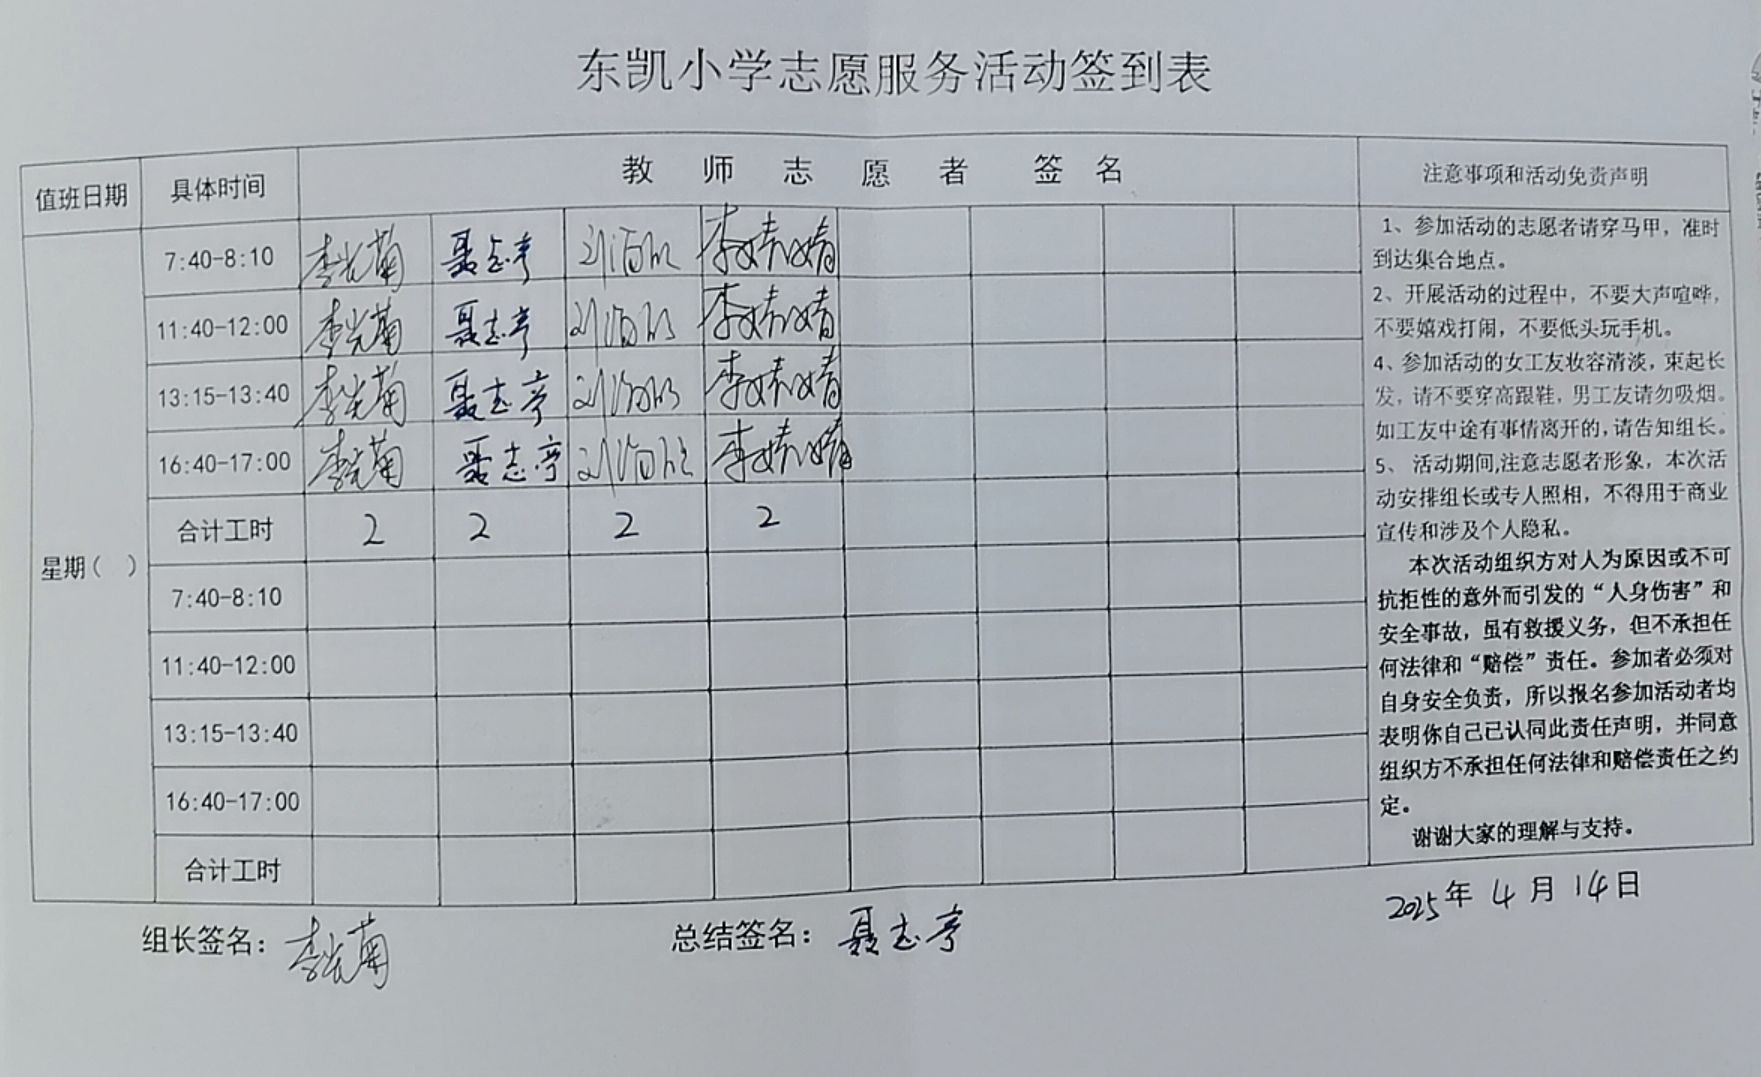 东凯小学志愿服务活动签到表
值班日期 具体时间 教师志愿者 签名 注意事项和活动免责声明
7:40-8:10 李光菊 聂志亭 李婧婧
11:40-12:00 李光菊 聂志亭 李婧婧
13:15-13:40 李光菊 聂志亭 李婧婧
16:40-17:00 李光菊 聂志亭 李婧婧
合计工时 2 2 2 2
星期( )
7:40-8:10
11:40-12:00
13:15-13:40
16:40-17:00
合计工时
1、参加活动的志愿者请穿马甲，准时
到达集合地点。
2、开展活动的过程中，不要大声喧哗，
不要嬉戏打闹，不要低头玩手机。
4、参加活动的女工友妆容清淡，束起长
发，请不要穿高跟鞋，男工友请勿吸烟。
如工友中途有事情离开的,请告知组长。
5、 活动期间,注意志愿者形象，本次活
动安排组长或专人照相，不得用于商业
宣传和涉及个人隐私。
本次活动组织方对人为原因或不可
抗拒性的意外而引发的“人身伤害”和
安全事故，虽有救援义务，但不承担任
何法律和“赔偿”责任。参加者必须对
自身安全负责，所以报名参加活动者均
表明你自己已认同此责任声明，并同意
组织方不承担任何法律和赔偿责任之约
定。
谢谢大家的理解与支持。
组长签名：李光菊 总结签名：聂志亭 2025年 4月 14日